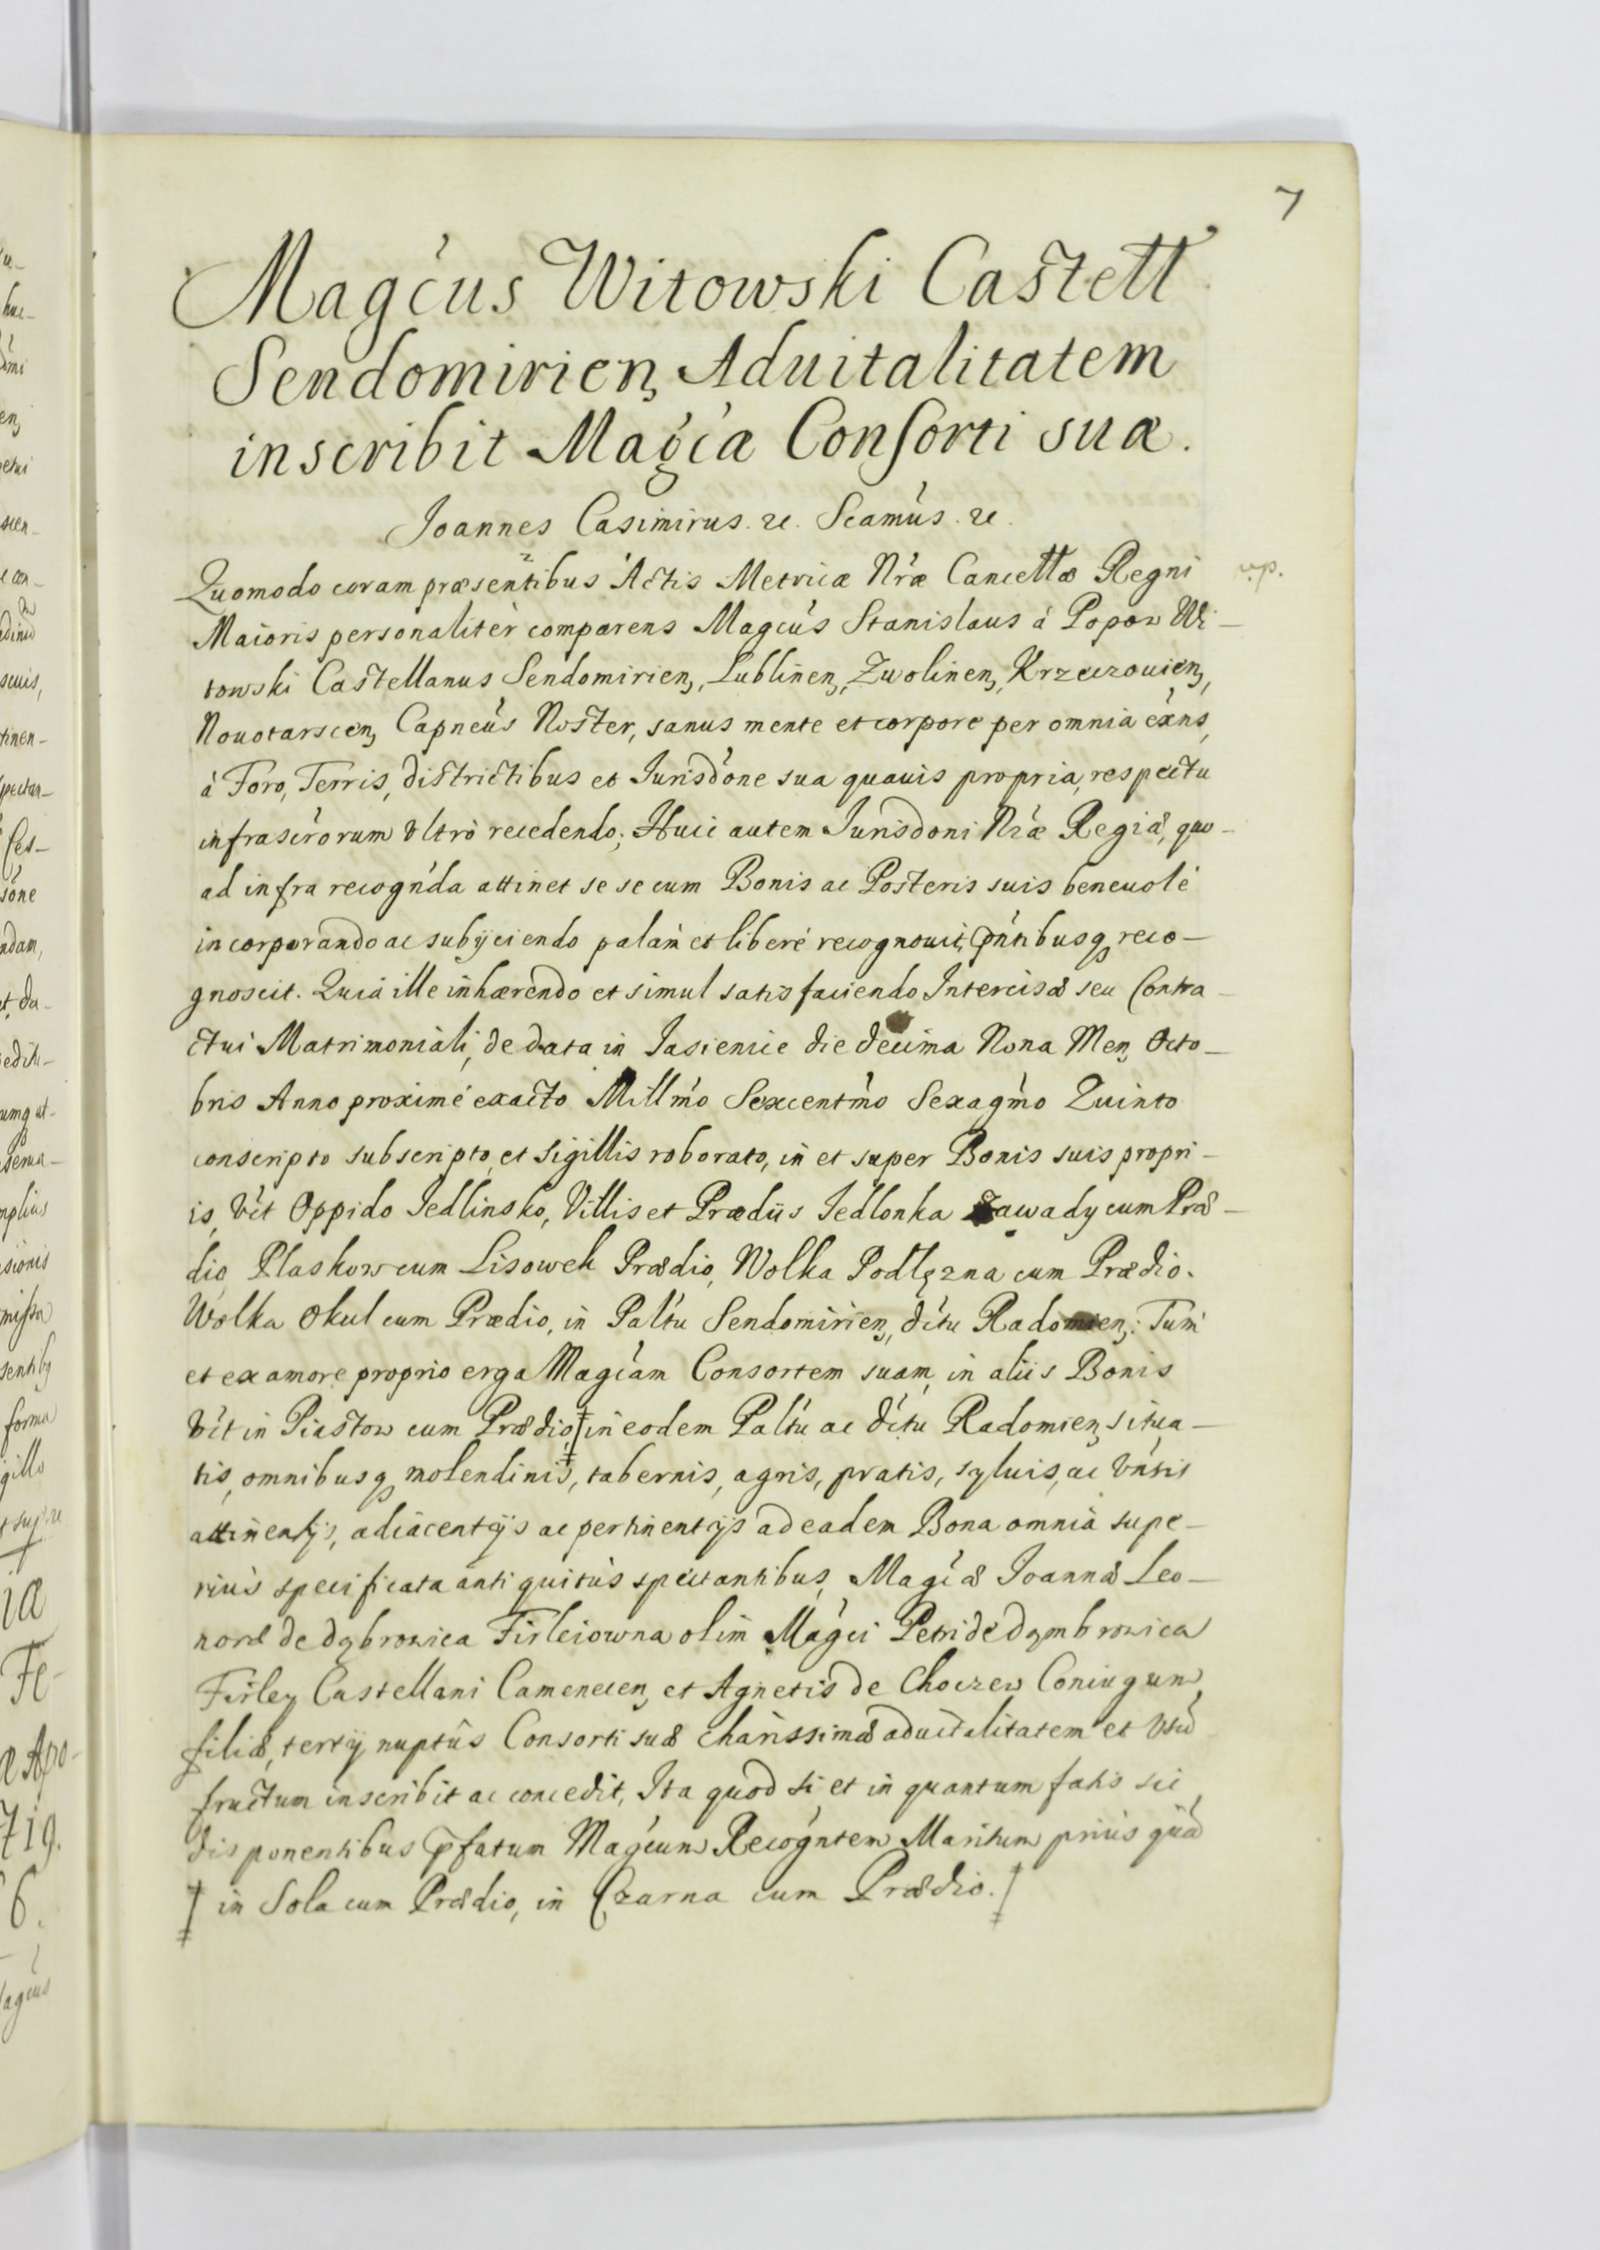 7
Magcus Witowski Castell
Sendomirien, Aduitalitatem
inscribit Magca Consorti suæ.
Joannes Casimirus. &. Scamus. &.
Quomodo coram præsentibus Actis Metricæ Nræ Cancellæ Regni
Maioris personalitèr comparens Magcus Stanislaus à Popow Wi-
towski Castellanus Sendomirien, Lublinen, Zwolinen, Krzeczouien,
Nouotarscen, Capneus Noster, sanus mente et corpore per omnia exns,
à Foro, Terris, districtibus et Jurisdone sua quauis propria, respectu
infrascrorum vltrò recedendo; Huic autem Jurisdoni Nræ Regiæ, quo-
ad infra recognda attinet se se cum Bonis ac Posteris suis beneuolé
incorporando ac subijciendo palam et liberé recognouit, pntibusq reco-
gnoscit. Quia ille inhærendo et simul satisfaciendo Intercisæ seu Contra-
ctui Matrimoniali, de data in Jasienice die decima Nona Men, Octo-
bris Anno proximé exacto Millmo Sexcentmo Sexagmo Quinto
conscripto subscripto, et sigillis roborato, in et super Bonis suis propri-
is, vct Oppido Jedlinsko, Villis et Prædiis Jedlonka Zawady cum Præ-
dio, Plaskow cum Lisowek Prædio, Wolka Podlęzna cum Prædio.
Wolka Okul cum Prædio, in Paltu Sendomirien, dctu Radomien; Tum
et ex amore proprio erga Magcam Consortem suam, in aliis Bonis
vct in Piastow cum Prædio, ‡ in eodem Paltu ac dctu Radomien, situa-
tis, omnibusq molendinis, tabernis, agris, pratis, syluis, ac vnsis
attinentijs, adiacentijs ac pertinentijs ad eadem Bona omnia supe-
riùs specificata antiquitùs spectantibus, Magcæ Joannæ Leo-
noræ de Dąbrowica Firleiowna olim Magci Petri de Dąmbrowica
Firley Castellani Camenecen, et Agnetis de Choczew Coniugum,
filiæ, tertij nuptûs Consorti suæ charissimæ aduitalitatem et vsu
fructum inscribit ac concedit, Ita quod si et in quantum fatis sic
disponentibus pfatum Magcum Recogntem Maritum priùs qua
‡ in Sola cum Prædio, in Czarna cum Prædio. ‡